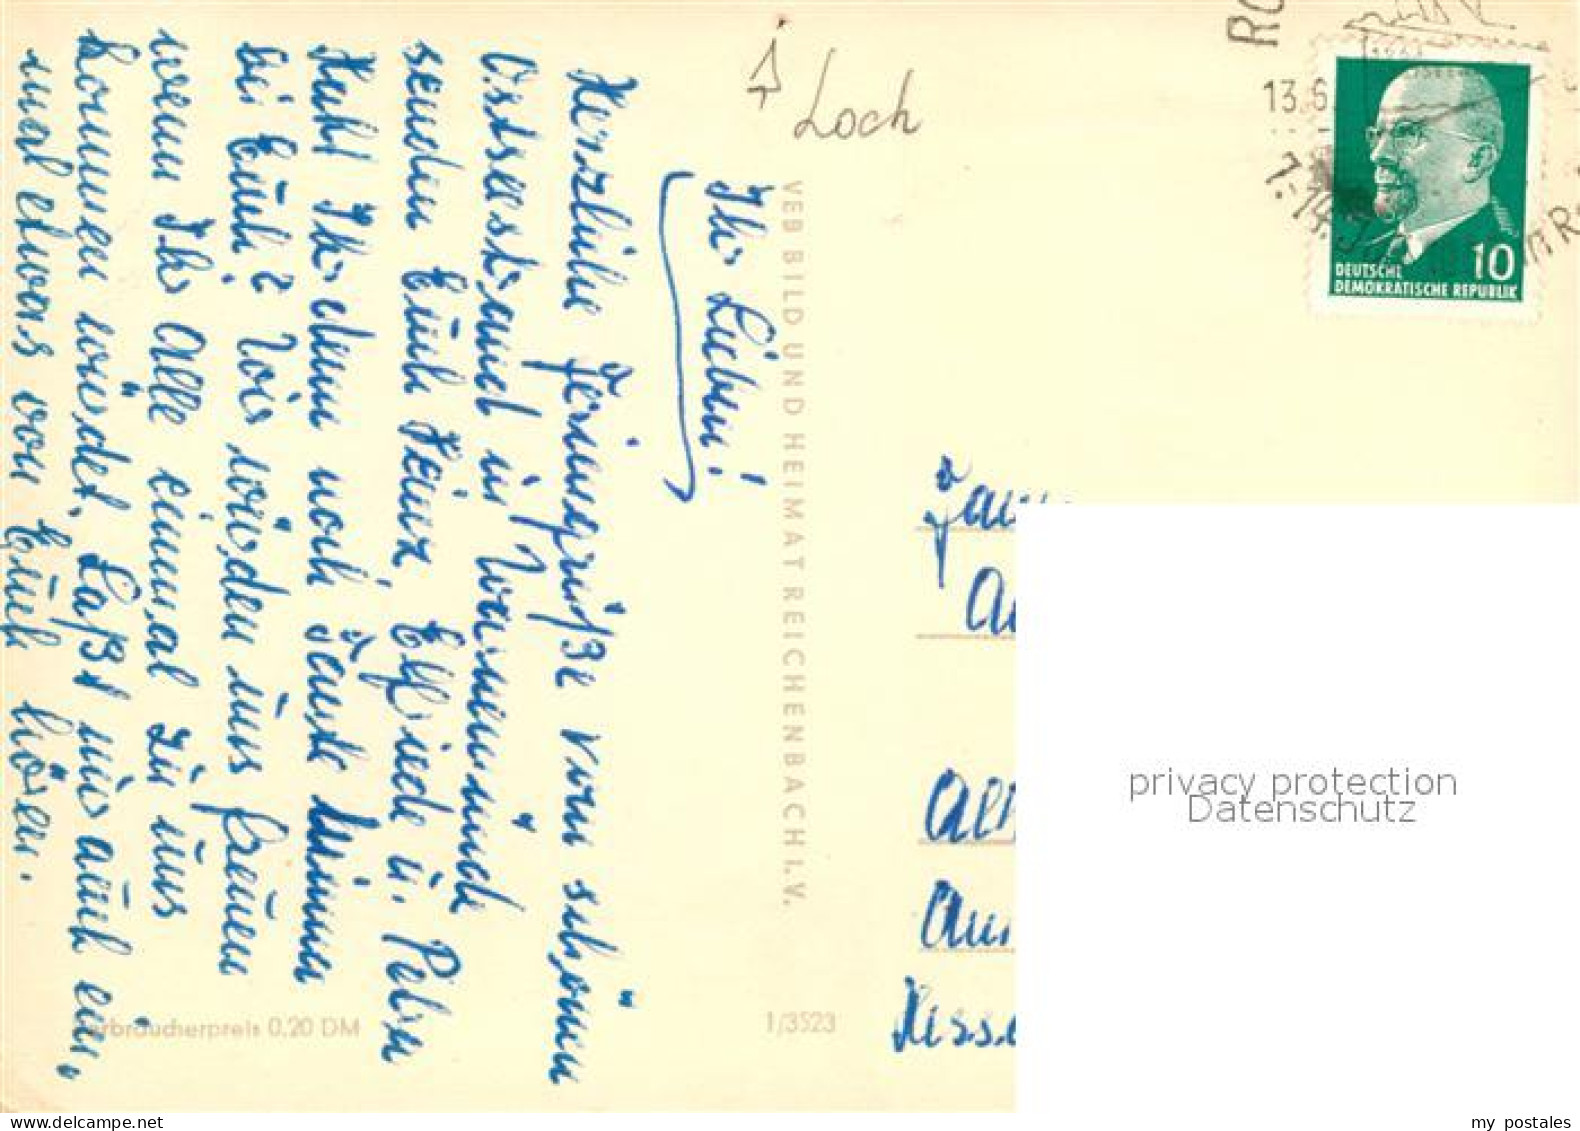 Ihr Lieben!
Herzliche Feriengrüße vom schönen
Ostseestrand in Warnemünde
senden Euch Heinz, Elfriede u. Peter
Habt Ihr denn noch Tante Minna
bei Euch? Wir würden uns freuen
wenn Ihr alle einmal zu uns
kommen würdet. Laßt nur auch ein-
mal etwas von Euch hören.
Loch
VEB BILD UND HEIMAT REICHENBACH I. V.
Verbraucherpreis 0,20 DM
1/3523
13.6
7.-14.J
10
DEUTSCHE
DEMOKRATISCHE REPUBLIK
privacy protection
Datenschutz
my postales